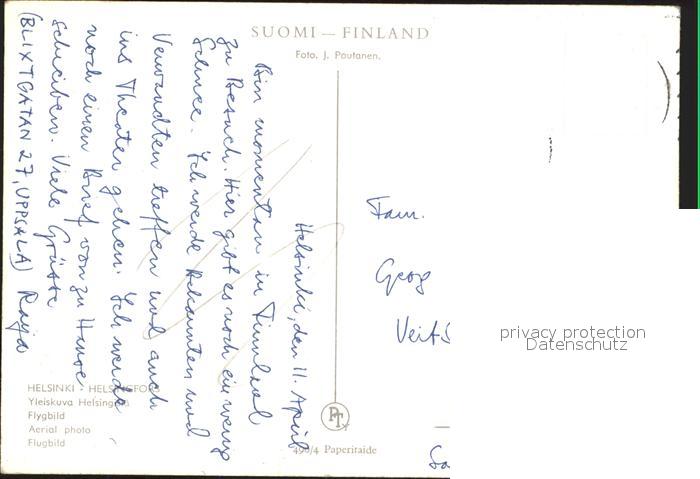 SUOMI — FINLAND
Foto. J. Poutanen.
Helsinki, den 11. April
Bin momentan in Finnland
zu Besuch. Hier gibt es noch ein wenig
Schnee. Ich werde Bekannten und
Verwandten treffen und auch
ins Theater gehen. Ich werde
noch einen Brief von zu Hause
schreiben. Viele Grüsse
(BLIXTGATAN 27, UPPSALA) Raija
Fam.
Georg
Veits
privacy protection
Datenschutz
HELSINKI - HELSINGFORS
Yleiskuva Helsingistä
Flygbild
Aerial photo
Flugbild
PT
490/4 Paperitaide